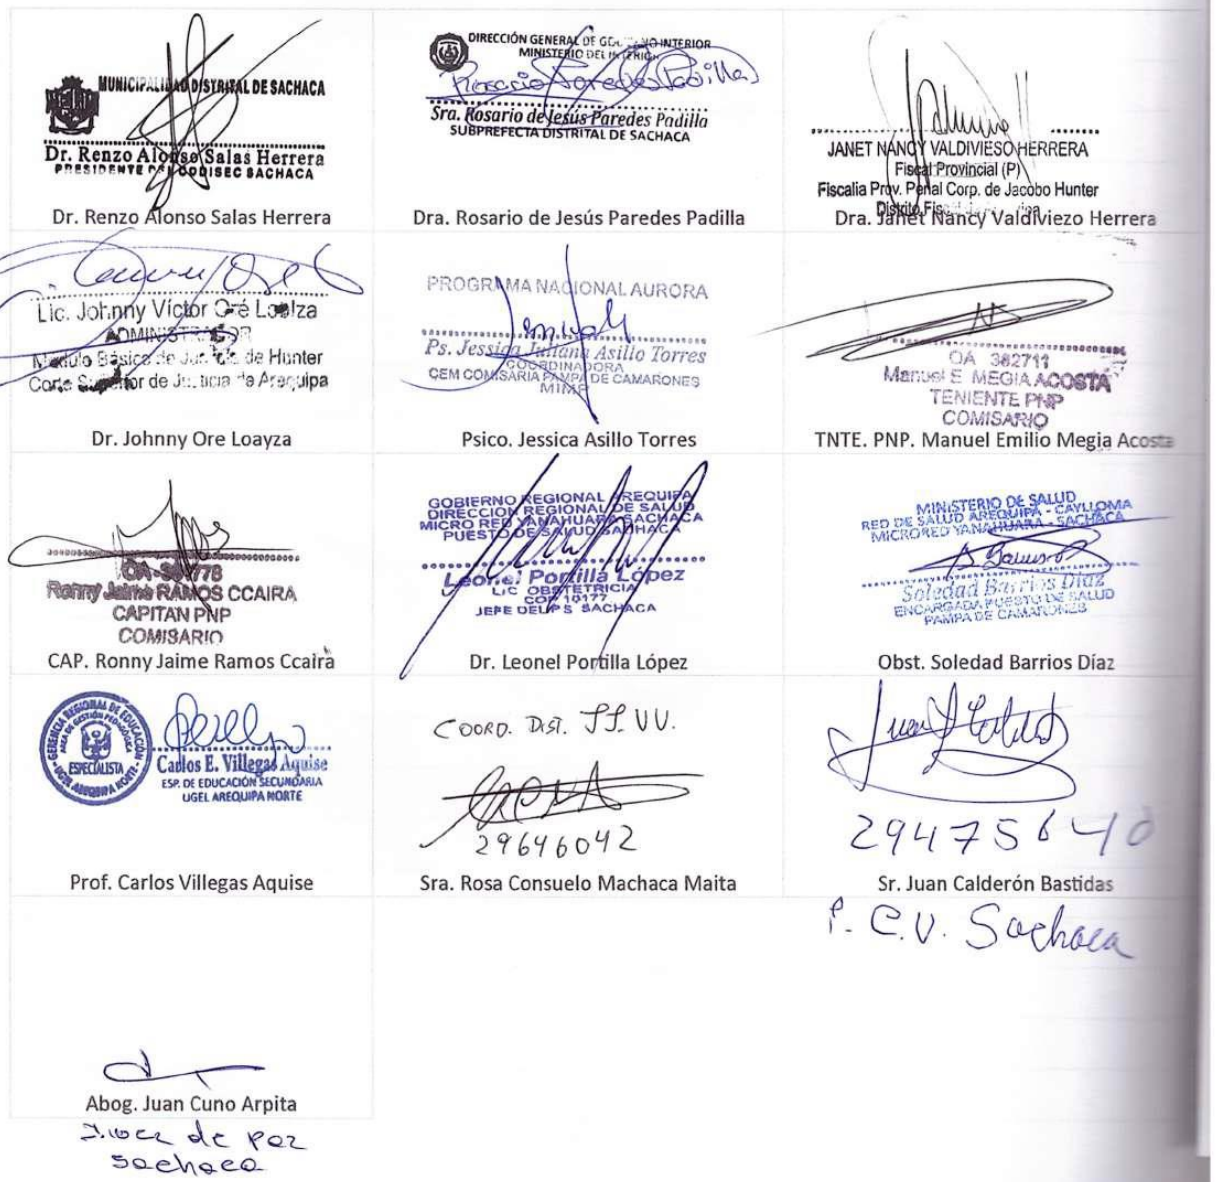 MUNICIPALIDAD DISTRITAL DE SACHACA
Dr. Renzo Alonso Salas Herrera
PRESIDENTE CODISEC SACHACA
Dr. Renzo Alonso Salas Herrera
DIRECCIÓN GENERAL DE INTERIOR
MINISTERIO DEL INTERIOR
Rosario Paredes Padilla
Sra. Rosario de Jesús Paredes Padilla
SUBPREFECTA DISTRITAL DE SACHACA
Dra. Rosario de Jesús Paredes Padilla
JANET NANCY VALDIVIESO HERRERA
Fiscal Provincial (P)
Fiscalia Prov. Penal Corp. de Jacobo Hunter
Distrito
Dra. Janet Nancy Valdiviezo Herrera
Lic. Johnny Víctor Oré Loaiza
ADMINISTRADOR
Módulo Básico de Justicia de Hunter
Corte Superior de Justicia de Arequipa
Dr. Johnny Ore Loayza
PROGRAMA NACIONAL AURORA
Ps. Jessica Juliana Asillo Torres
COORDINADORA
CEM COMISARIA PAMPA DE CAMARONES
MIMP
Psico. Jessica Asillo Torres
OA 382711
Manuel E MEGIA ACOSTA
TENIENTE PNP
COMISARIO
TNTE. PNP. Manuel Emilio Megia Acosta
Ronny Jaime RAMOS CCAIRA
CAPITAN PNP
COMISARIO
CAP. Ronny Jaime Ramos Ccaira
GOBIERNO REGIONAL AREQUIPA
DIRECCION REGIONAL DE SALUD
MICRO RED YANAHUARA SACHACA
PUESTO DE SALUD SACHACA
Leonel Portilla López
LIC OBSTETRICIA
COP 10177
JEFE DEL P S SACHACA
Dr. Leonel Portilla López
MINISTERIO DE SALUD
RED DE SALUD AREQUIPA - CAYLLOMA
MICRORED YANAHUARA - SACHACA
Soledad Barrios Díaz
ENCARGADA PUESTO DE SALUD
PAMPA DE CAMARONES
Obst. Soledad Barrios Díaz
GERENCIA REGIONAL DE EDUCACIÓN
AREA DE GESTIÓN PEDAGÓGICA
ESPECIALISTA
UGEL AREQUIPA NORTE
Carlos E. Villegas Aquise
ESP. DE EDUCACIÓN SECUNDARIA
UGEL AREQUIPA NORTE
Prof. Carlos Villegas Aquise
COORD. DIST. JJ.VV.
29646042
Sra. Rosa Consuelo Machaca Maita
29475640
Sr. Juan Calderón Bastidas
P. C.V. Sachaca
Abog. Juan Cuno Arpita
Juez de paz
sachaca